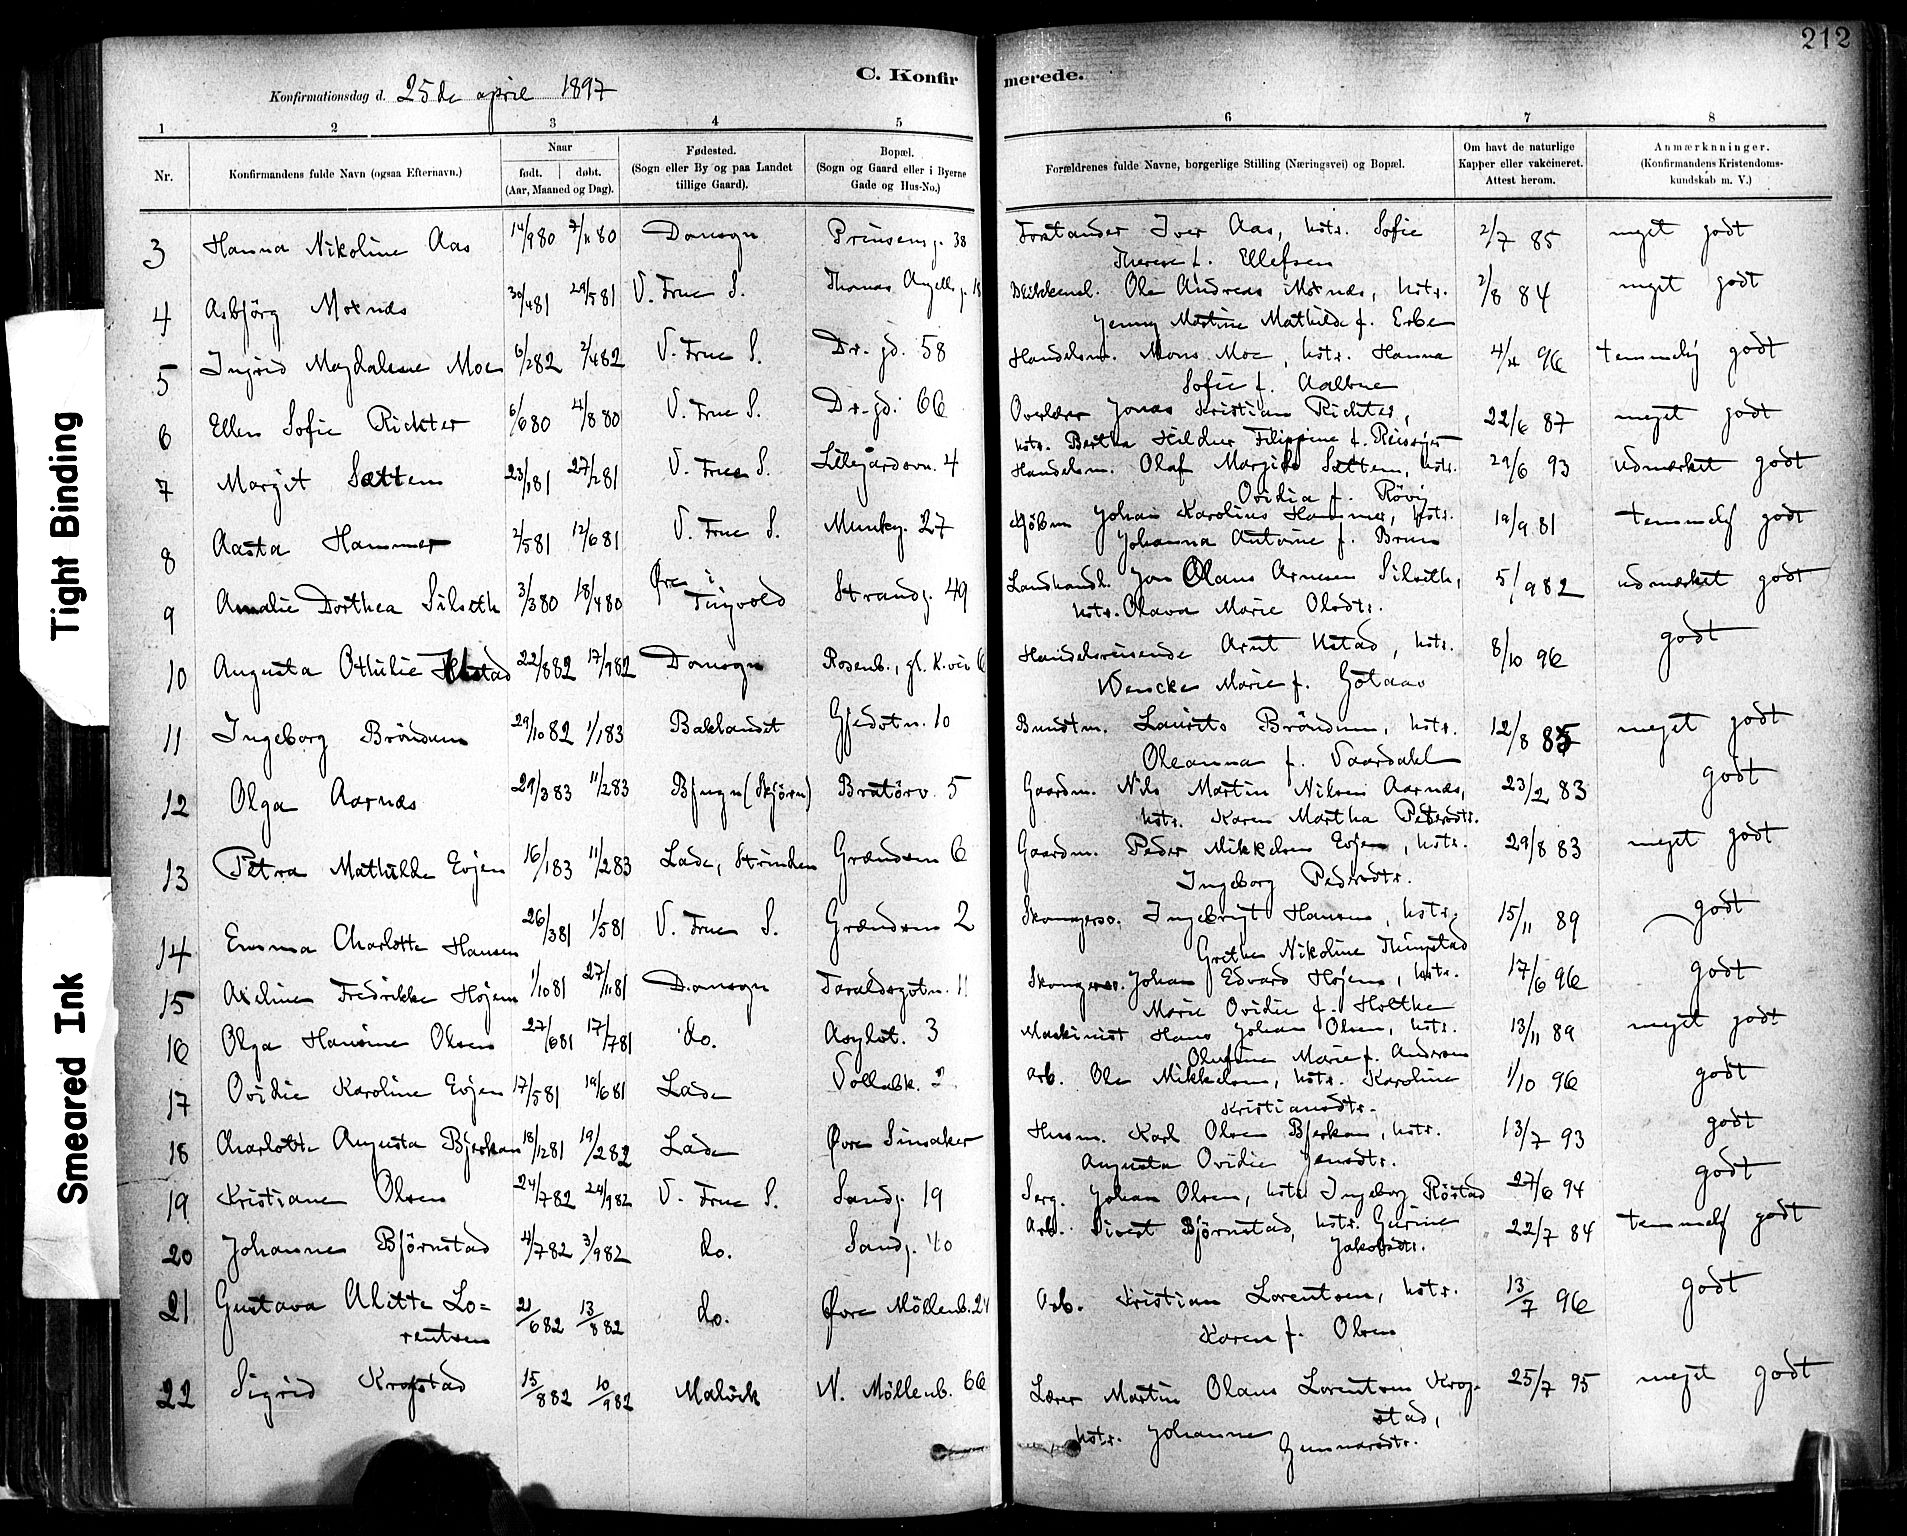 212
C. Konfirmerede.
Konfirmationsdag d. 25de april 1897
1 2 3 4 5 6 7 8
Nr.
Konfirmandens fulde Navn (ogsaa Efternavn.)
Naar
født. døbt.
(Aar, Maaned og Dag).
Fødested.
(Sogn eller By og paa Landet
tillige Gaard).
Bopæl.
(Sogn og Gaard eller i Byerne
Gade og Hus-No.)
Forældrenes fulde Navne, borgerlige Stilling (Næringsvei) og Bopæl.
Om havt de naturlige
Kapper eller vakcineret.
Attest herom.
Anmærkninger.
(Konfirmandens Kristendoms-
kundskab m. V.)
3 Hanna Nikoline Aas 14/9 80 7/11 80 Domsogn Prinsensg. 38 Forstander Iver Aas, hstr. Sofie 2/7 85 meget godt
Therese f. Ellefsen
4 Asbjörg Moxnæs 30/4 81 29/5 81 V. Frue S. Thomas Angells g. 18 Blikkensl. Ole Andreas Moxnæs, hstr. 2/8 84 meget godt
Jenny Martine Mathilde f. Erbe
5 Ingrid Magdalene Moe 6/2 82 2/4 82 V. Frue S. Dr. gd. 58 Handelsm. Mons Moe, hstr. Hanna 4/4 96 temmelig godt
Sofie f. Aalbue
6 Ellen Sofie Richter 6/6 80 4/8 80 V. Frue S. Dr. gd. 66 Overlærer Jonas Kristian Richter, 22/6 87 meget godt
hstr. Bertha Hildur Filippine f.
7 Margit Sættem 23/1 81 27/2 81 V. Frue S. Lillegårdsvn. 4 Handelsm. Olaf Sættem, hstr. 29/6 93 udmærket godt
Ovidia f. Rövig
8 Aasta Hammer 2/5 81 12/6 81 V. Frue S. Munkg. 27 Kjöbm Johan Karolius Hammer, hstr. 19/9 81 temmelig godt
Johanna Antonie f. Bruun
9 Amalie Dorthea Silseth 3/3 80 18/4 80 Øre i Tingvold Strandg. 49 Landhandl. Jon Olaus Arnesen Silseth, 5/9 82 udmærket godt
hstr. Olava Marie Olsdtr.
10 Augusta Othilie Ustad 22/8 82 17/9 82 Domsogn Rosenb., gl. K.vei 6 Handelsreisende Arnt Ustad, hstr. 8/10 96 godt
Wencke Marie f. Götaas
11 Ingeborg Bröndum 29/10 82 1/1 83 Baklandet Gjedstn. 10 Bundtm. Laurits Bröndum, hstr. 12/8 85 meget godt
Oleanna f. Vaardahl
12 Olga Aarnæs 29/3 83 11/2 83 Bjugn (Skjörn) Bratörv. 5 Gaardm. Nils Martin Nilsen Aarnæs, 23/2 83 godt
hstr. Karen Martha Petersdtr.
13 Petra Mathilde Evjen 16/1 83 11/2 83 Lade, Strinden Grændsen 6 Gaardm. Peder Mikkelsen Evjen, hstr. 29/8 83 meget godt
Ingeborg Pedersdtr.
14 Emma Charlotte Hansen 26/3 81 1/5 81 V. Frue S. Grændsen 2 Skomagersv. Ingebrigt Hansen, hstr. 15/11 89 godt
Grethe Nikoline
15 Axeline Fredrikke Højem 1/10 81 27/11 81 Domsogn Taraldsgötn. 11 Skomager. Johan Edvard Højem, hstr. 17/6 96 godt
Marie Ovidie f. Holthe
16 Olga Hansine Olsen 27/6 81 17/7 81 do. Asylst. 3 Maskinist Hans Johan Olsen, hstr. 13/11 89 meget godt
Olufine Marie f. Andersen
17 Ovidie Karoline Evjen 17/5 81 19/6 81 Lade Vollabk. Arb. Ole Mikkelsen, hstr. Karoline 1/10 96 godt
Kristiansdtr.
18 Charlotte Augusta Bjerkan 18/12 81 19/2 82 Lade Øvre Sinsaker Husm. Karl Olsen Bjerkan, hstr. 13/7 93 godt
Augusta Ovidie Jensdtr.
19 Kristiane Olsen 24/7 82 24/9 82 V. Frue S. Sandg. 19 Serg. Johan Olsen, hstr. Ingeborg Röstad 27/6 94 godt
20 Johanne Björnstad 4/7 82 3/9 82 do. Sandg. 40 Arb. Sivert Björnstad, hstr. Gurine 22/7 84 temmelig godt
Jakobsdtr.
21 Gustava Alette Lo= 21/6 82 13/8 82 do. Øvre Möllenb. 24 Arb. Kristian Lorentsen, hstr. 13/7 96 godt
rentsen Karen f. Olsen
22 Sigrid Krogstad 15/8 82 10/9 82 Malvik N. Möllenb. 66 Lærer Martin Olaus Lorentsen Krog- 25/7 95 meget godt
stad,
hstr. Johanne Gunnarsdtr.
Tight Binding
Smeared Ink